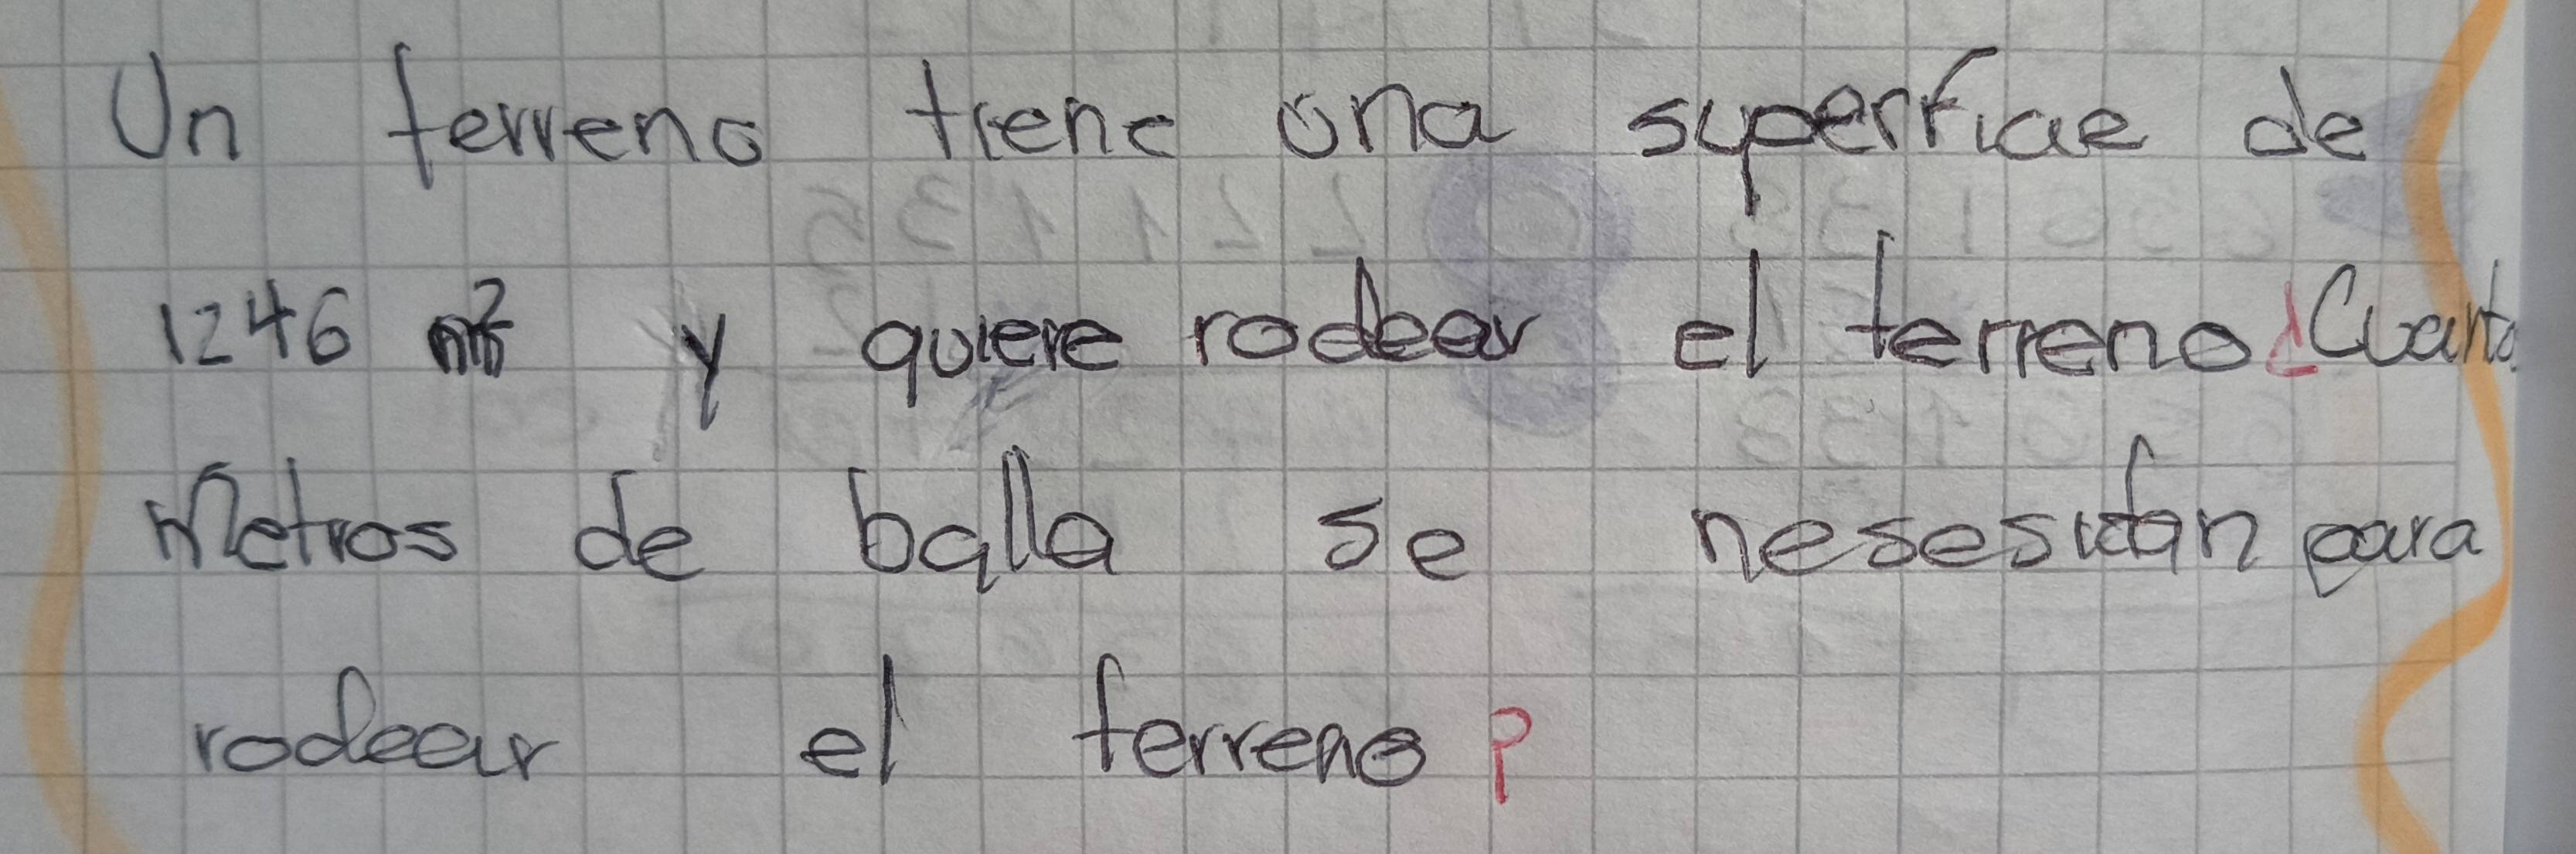 Un terreno tiene una superficie de
1246 m² y quiere rodear el terreno ¿Cuanto
Metros de balla se nesesitan para
rodear el terreno?